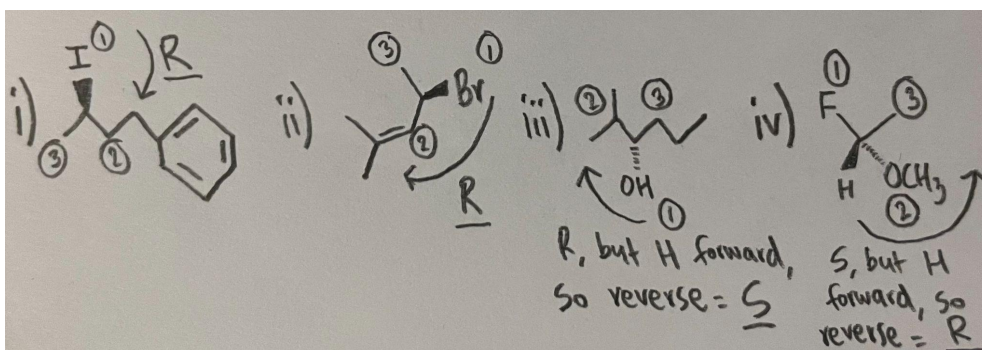 i) I ① R ③ ②
ii) ③ ① Br ② R
iii) ② ③ OH ①
R, but H forward,
so reverse = S
iv) ① F ③ H OCH₃ ②
S, but H
forward, so
reverse = R